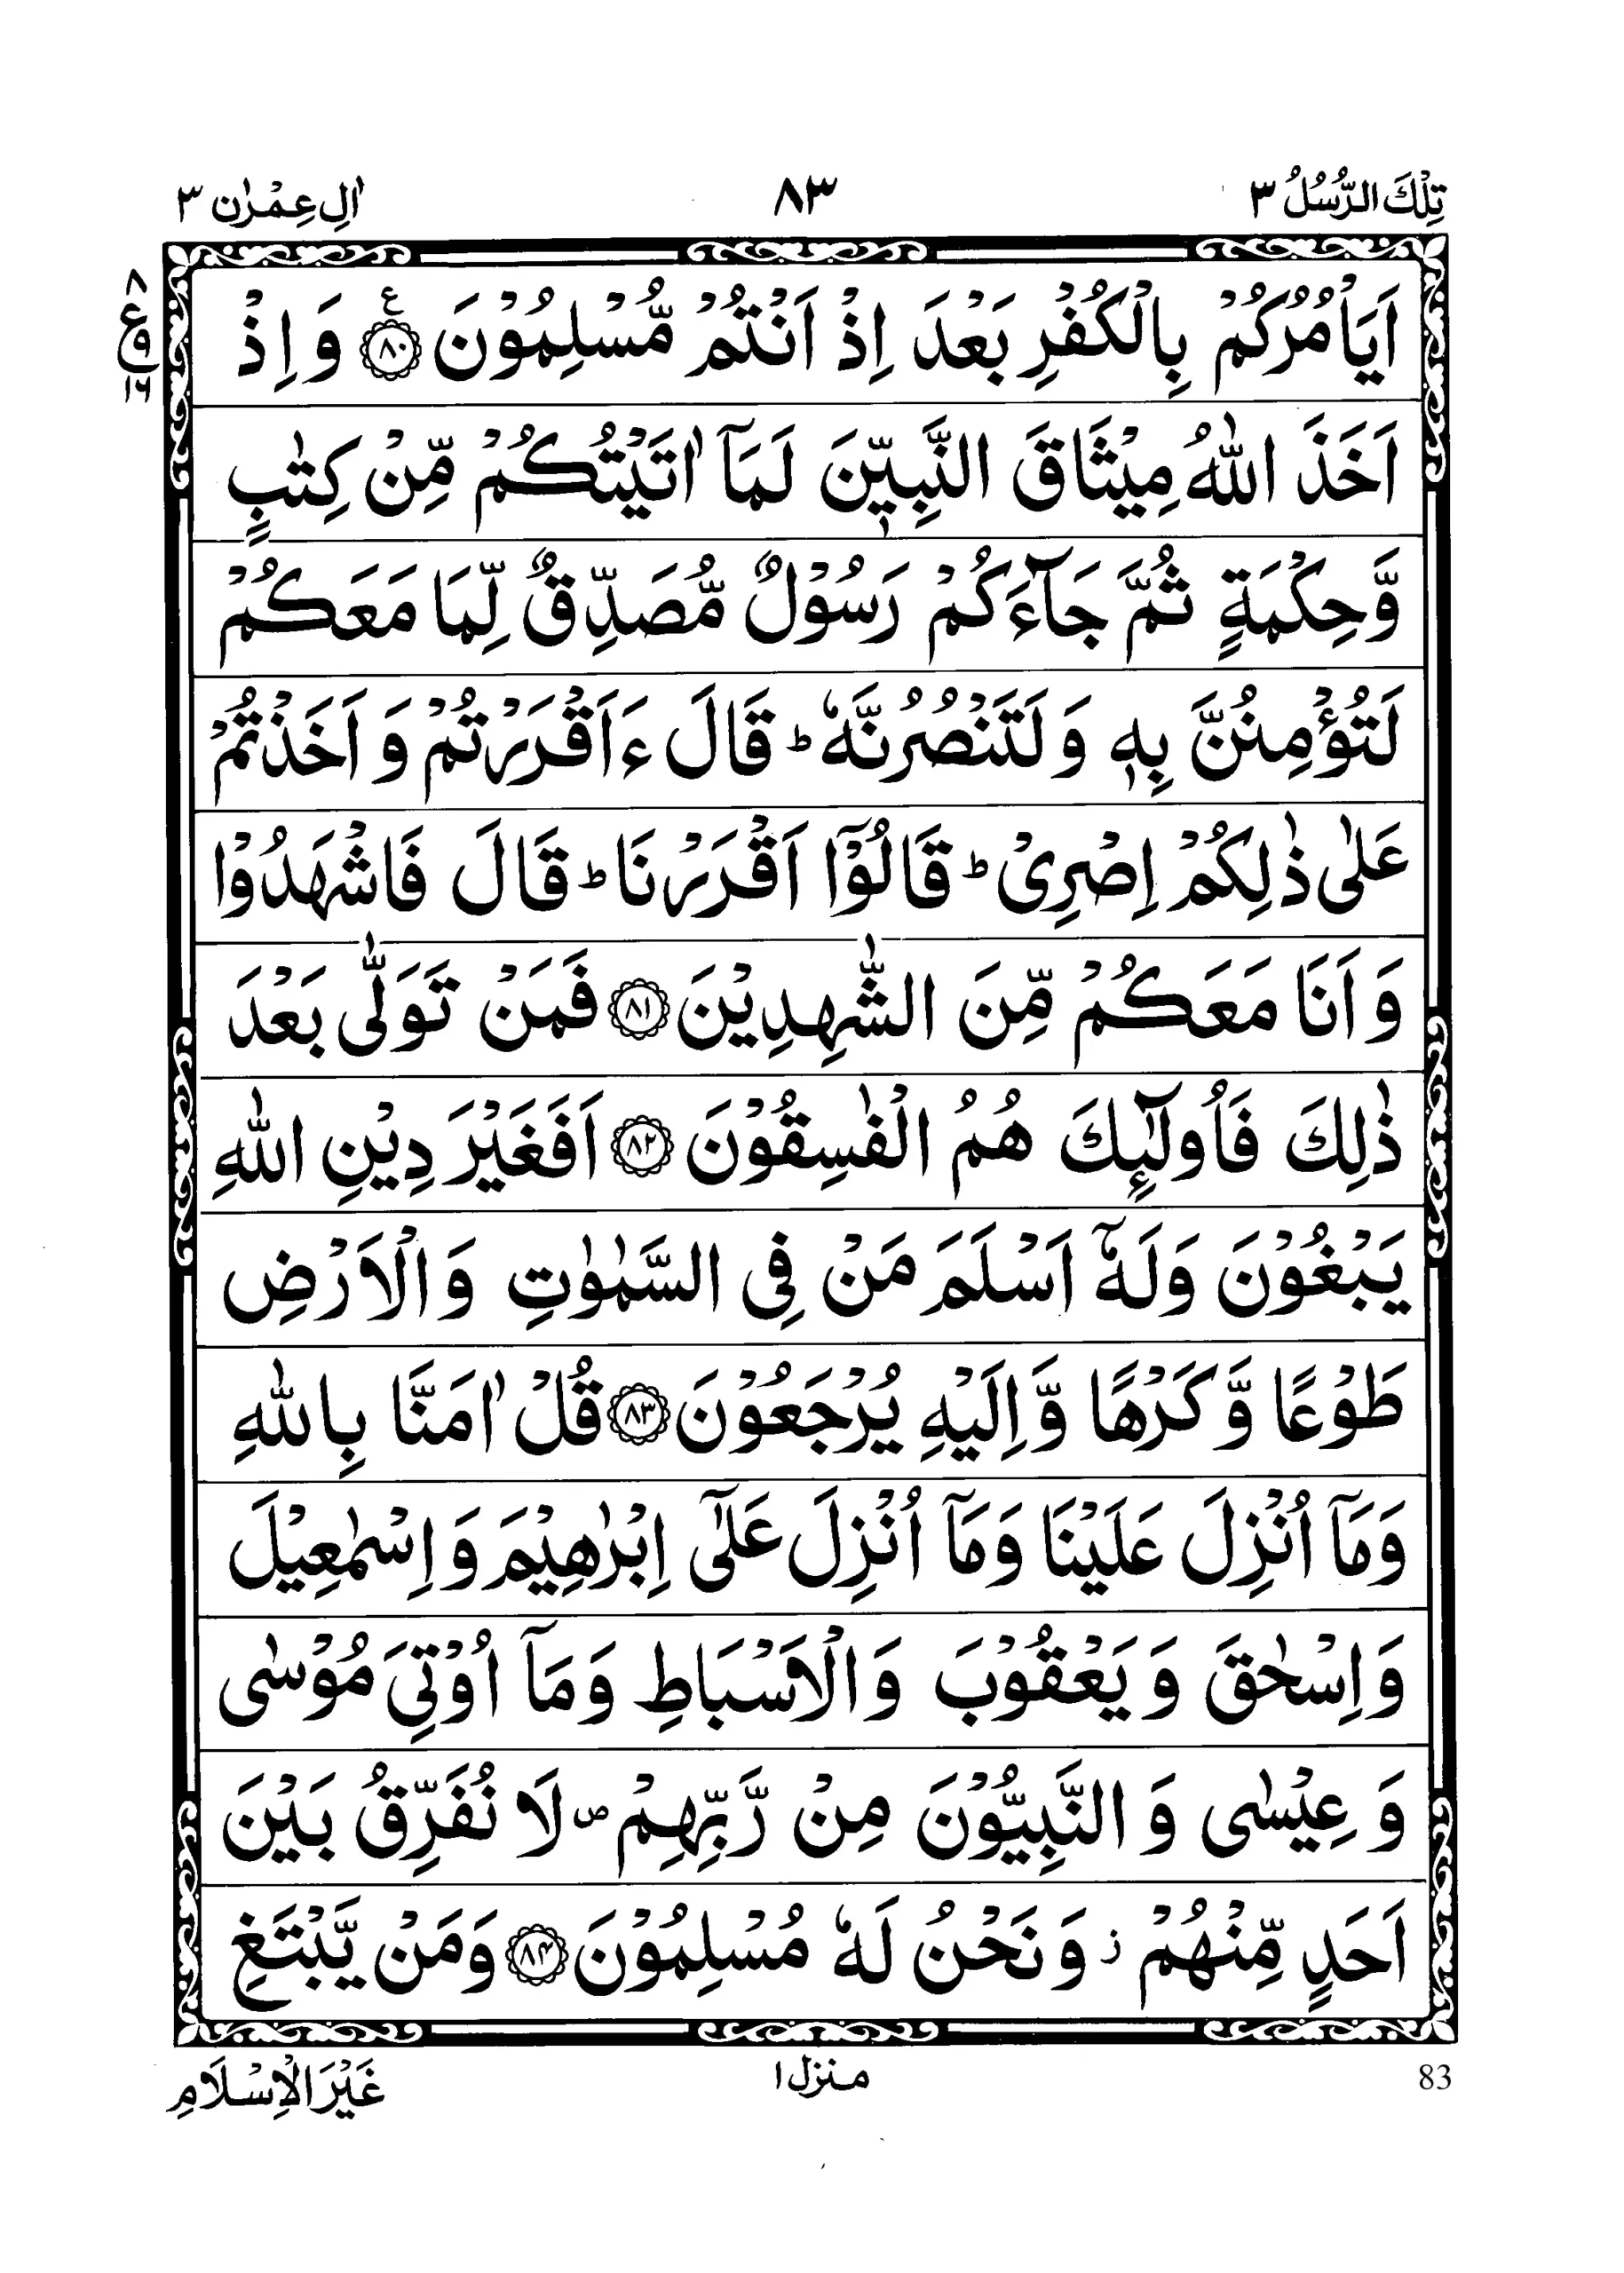 تِلْكَ الرُّسُلُ ٣ ٨٣ اٰلِ عِمْرٰن ٣
اَيَاْمُرُكُمْ بِالْكُفْرِ بَعْدَ اِذْ اَنْتُمْ مُّسْلِمُوْنَ ۧ﴿٨٠﴾ وَ اِذْ
٨ ع ٩ ١٦
اَخَذَ اللّٰهُ مِيْثَاقَ النَّبِيّٖنَ لَمَاۤ اٰتَيْتُكُمْ مِّنْ كِتٰبٍ
وَّحِكْمَةٍ ثُمَّ جَآءَكُمْ رَسُوْلٌ مُّصَدِّقٌ لِّمَا مَعَكُمْ
لَتُؤْمِنُنَّ بِهٖ وَ لَتَنْصُرُنَّهٗ ؕ قَالَ ءَاَقْرَرْتُمْ وَ اَخَذْتُمْ
عَلٰى ذٰلِكُمْ اِصْرِىْ ؕ قَالُوْۤا اَقْرَرْنَا ؕ قَالَ فَاشْهَدُوْا
وَ اَنَا مَعَكُمْ مِّنَ الشّٰهِدِيْنَ ﴿٨١﴾ فَمَنْ تَوَلّٰى بَعْدَ
ذٰلِكَ فَاُولٰٓئِكَ هُمُ الْفٰسِقُوْنَ ﴿٨٢﴾ اَفَغَيْرَ دِيْنِ اللّٰهِ
يَبْغُوْنَ وَلَهٗۤ اَسْلَمَ مَنْ فِى السَّمٰوٰتِ وَ الْاَرْضِ
طَوْعًا وَّ كَرْهًا وَّ اِلَيْهِ يُرْجَعُوْنَ ﴿٨٣﴾ قُلْ اٰمَنَّا بِاللّٰهِ
وَمَاۤ اُنْزِلَ عَلَيْنَا وَمَاۤ اُنْزِلَ عَلٰٓى اِبْرٰهِيْمَ وَ اِسْمٰعِيْلَ
وَ اِسْحٰقَ وَ يَعْقُوْبَ وَ الْاَسْبَاطِ وَمَاۤ اُوْتِىَ مُوْسٰى
وَ عِيْسٰى وَ النَّبِيُّوْنَ مِنْ رَّبِّهِمْ ۪ لَا نُفَرِّقُ بَيْنَ
اَحَدٍ مِّنْهُمْ ؗ وَ نَحْنُ لَهٗ مُسْلِمُوْنَ ﴿٨٤﴾ وَمَنْ يَّبْتَغِ
83 منزل ١ غَيْرَ الْاِسْلَامِ